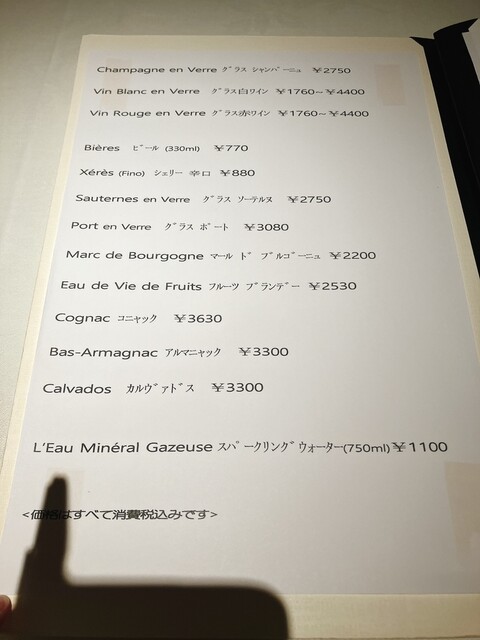 Champagne en Verre ｸﾞﾗｽ ｼｬﾝﾊﾟｰﾆｭ ￥2750
Vin Blanc en Verre ｸﾞﾗｽ白ワイン ￥1760~￥4400
Vin Rouge en Verre ｸﾞﾗｽ赤ワイン ￥1760~￥4400
Bières ﾋﾞｰﾙ (330ml) ￥770
Xérès (Fino) ｼｪﾘｰ 辛口 ￥880
Sauternes en Verre ｸﾞﾗｽ ｿｰﾃﾙﾇ ￥2750
Port en Verre ｸﾞﾗｽ ﾎﾟｰﾄ ￥3080
Marc de Bourgogne ﾏｰﾙ ﾄﾞ ﾌﾞﾙｺﾞｰﾆｭ ￥2200
Eau de Vie de Fruits ﾌﾙｰﾂ ﾌﾞﾗﾝﾃﾞｰ ￥2530
Cognac ｺﾆｬｯｸ ￥3630
Bas-Armagnac ｱﾙﾏﾆｬｯｸ ￥3300
Calvados ｶﾙｳﾞｧﾄﾞｽ ￥3300
L'Eau Minéral Gazeuse ｽﾊﾟｰｸﾘﾝｸﾞｳｫｰﾀｰ(750ml)￥1100
<価格はすべて消費税込みです>